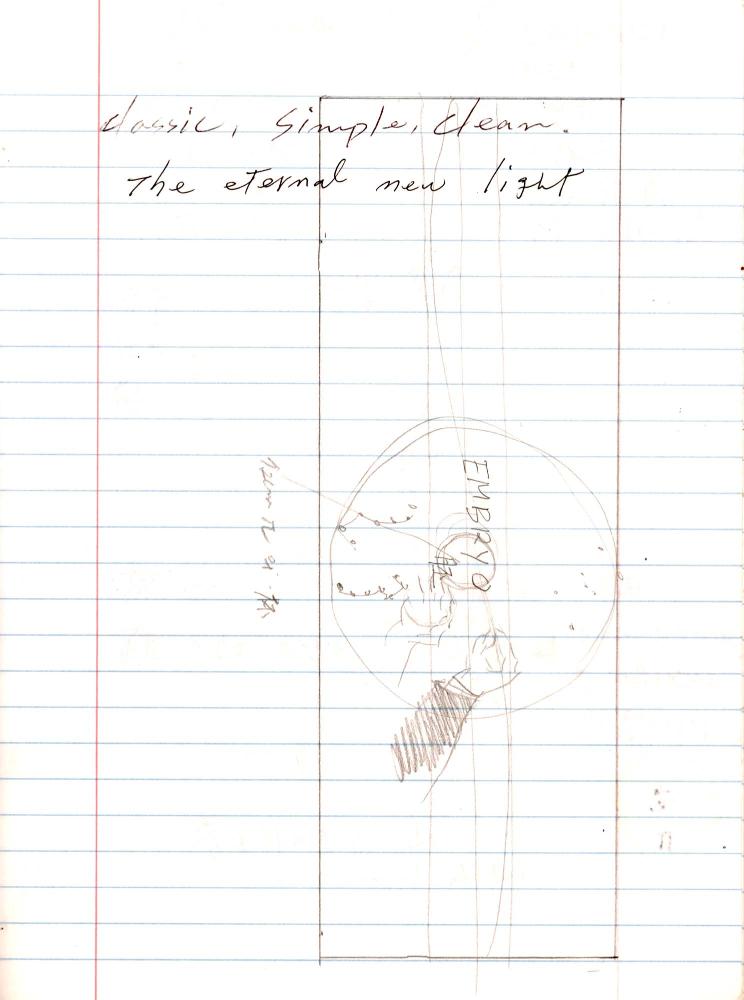 classic, simple, clean.
The eternal new light
EMBRYO